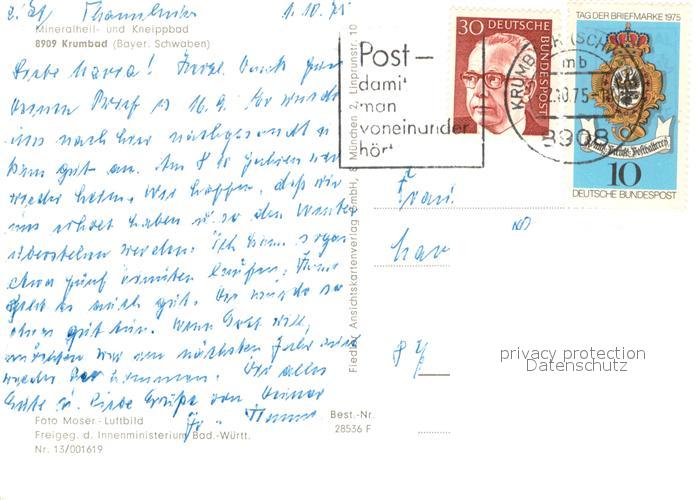 1.10.75
Mineralheil- und Kneippbad
8909 Krumbad (Bayer. Schwaben)
Liebe Maria! Herzl. Dank für
Deinen Brief v. 16.9. Er wurde
uns nach hier nachgesandt u.
kam gut an. Am 8. 10 fahren wir
wieder heim. Wir hoffen, daß wir
uns erholt haben u. so den Winter
überstehen werden. Ich kann sogar
etwa fünf Minuten laufen.
geht es auch gut.
gut tun. Wenn Gott will,
möchten wir im nächsten Jahr
wieder kommen. Dir alles
Gute u. liebe Grüße von Deiner
Foto Moser - Luftbild
Freigeg. d. Innenministerium Bad.-Württ.
Nr. 13/001619
Best.-Nr.
28536 F
Fiedler Ansichtskartenverlag GmbH, 8 München 2, Linprunstr. 10
Post -
damit
man
voneinander
hört
30 DEUTSCHE
BUNDESPOST
KRUMBACH (SCHW
mb
2.10.75
8908
TAG DER BRIEFMARKE 1975
10
DEUTSCHE BUNDESPOST
Frau
8
privacy protection
Datenschutz